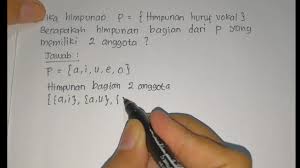 Jika himpunan P = { Himpunan huruf vokal }
Berapakah himpunan bagian dari P yang
memiliki 2 anggota ?
Jawab :
P = { a, i, u, e, o }
Himpunan bagian 2 anggota
{ {a,i}, {a,u}, {